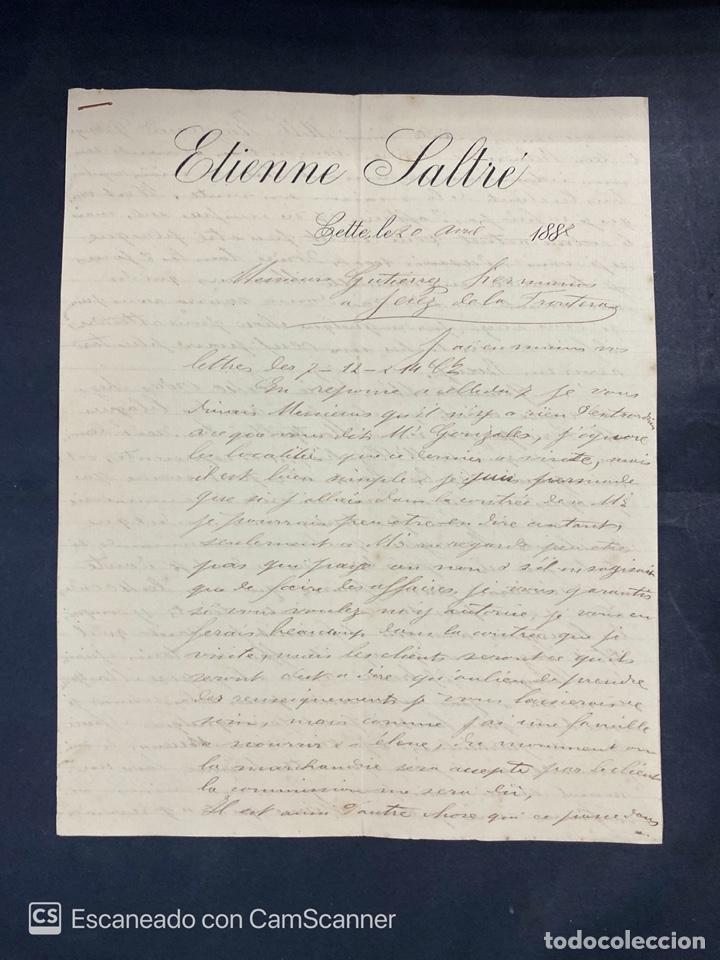 Etienne Saltré
Cette, le 20 Avril 1888
Messieurs Gutierrez Hermanos
a Jerez de la Frontera
J'ai en mains vos
lettres des 7 - 12 - & 14 Ct
En reponse a celle du 7 je vous
dirais Messieurs qu'il n'y a rien d'extraordin
a ce que vous dit Mr Gonzales, j'ignore
les localités que ce dernier a visité, mais
il est bien simple & je suis persuadé
que si j'allais dans la contrée de ce Mr
je pourrais peut etre en dire autant,
seulement ce Mr ne regarde peut etre
pas qui paye ou non & s'il ne s'agissait
que de faire des affaires, je vous garantis
si vous voulez m'y autorisé, je vous en
ferais beaucoup dans la contrée que je
visite, mais les clients seront ce qu'ils
seront c'est a dire qu'au lieu de prendre
des renseignements je vous laisserais ce
soin, mais comme j'ai une famille
a nourrir & a élever, du momment ou
la marchandise sera accepté par le client
la commission me sera dûe,
Il est aussi d'autre chose qui ce passe dans
CS Escaneado con CamScanner
todocoleccion